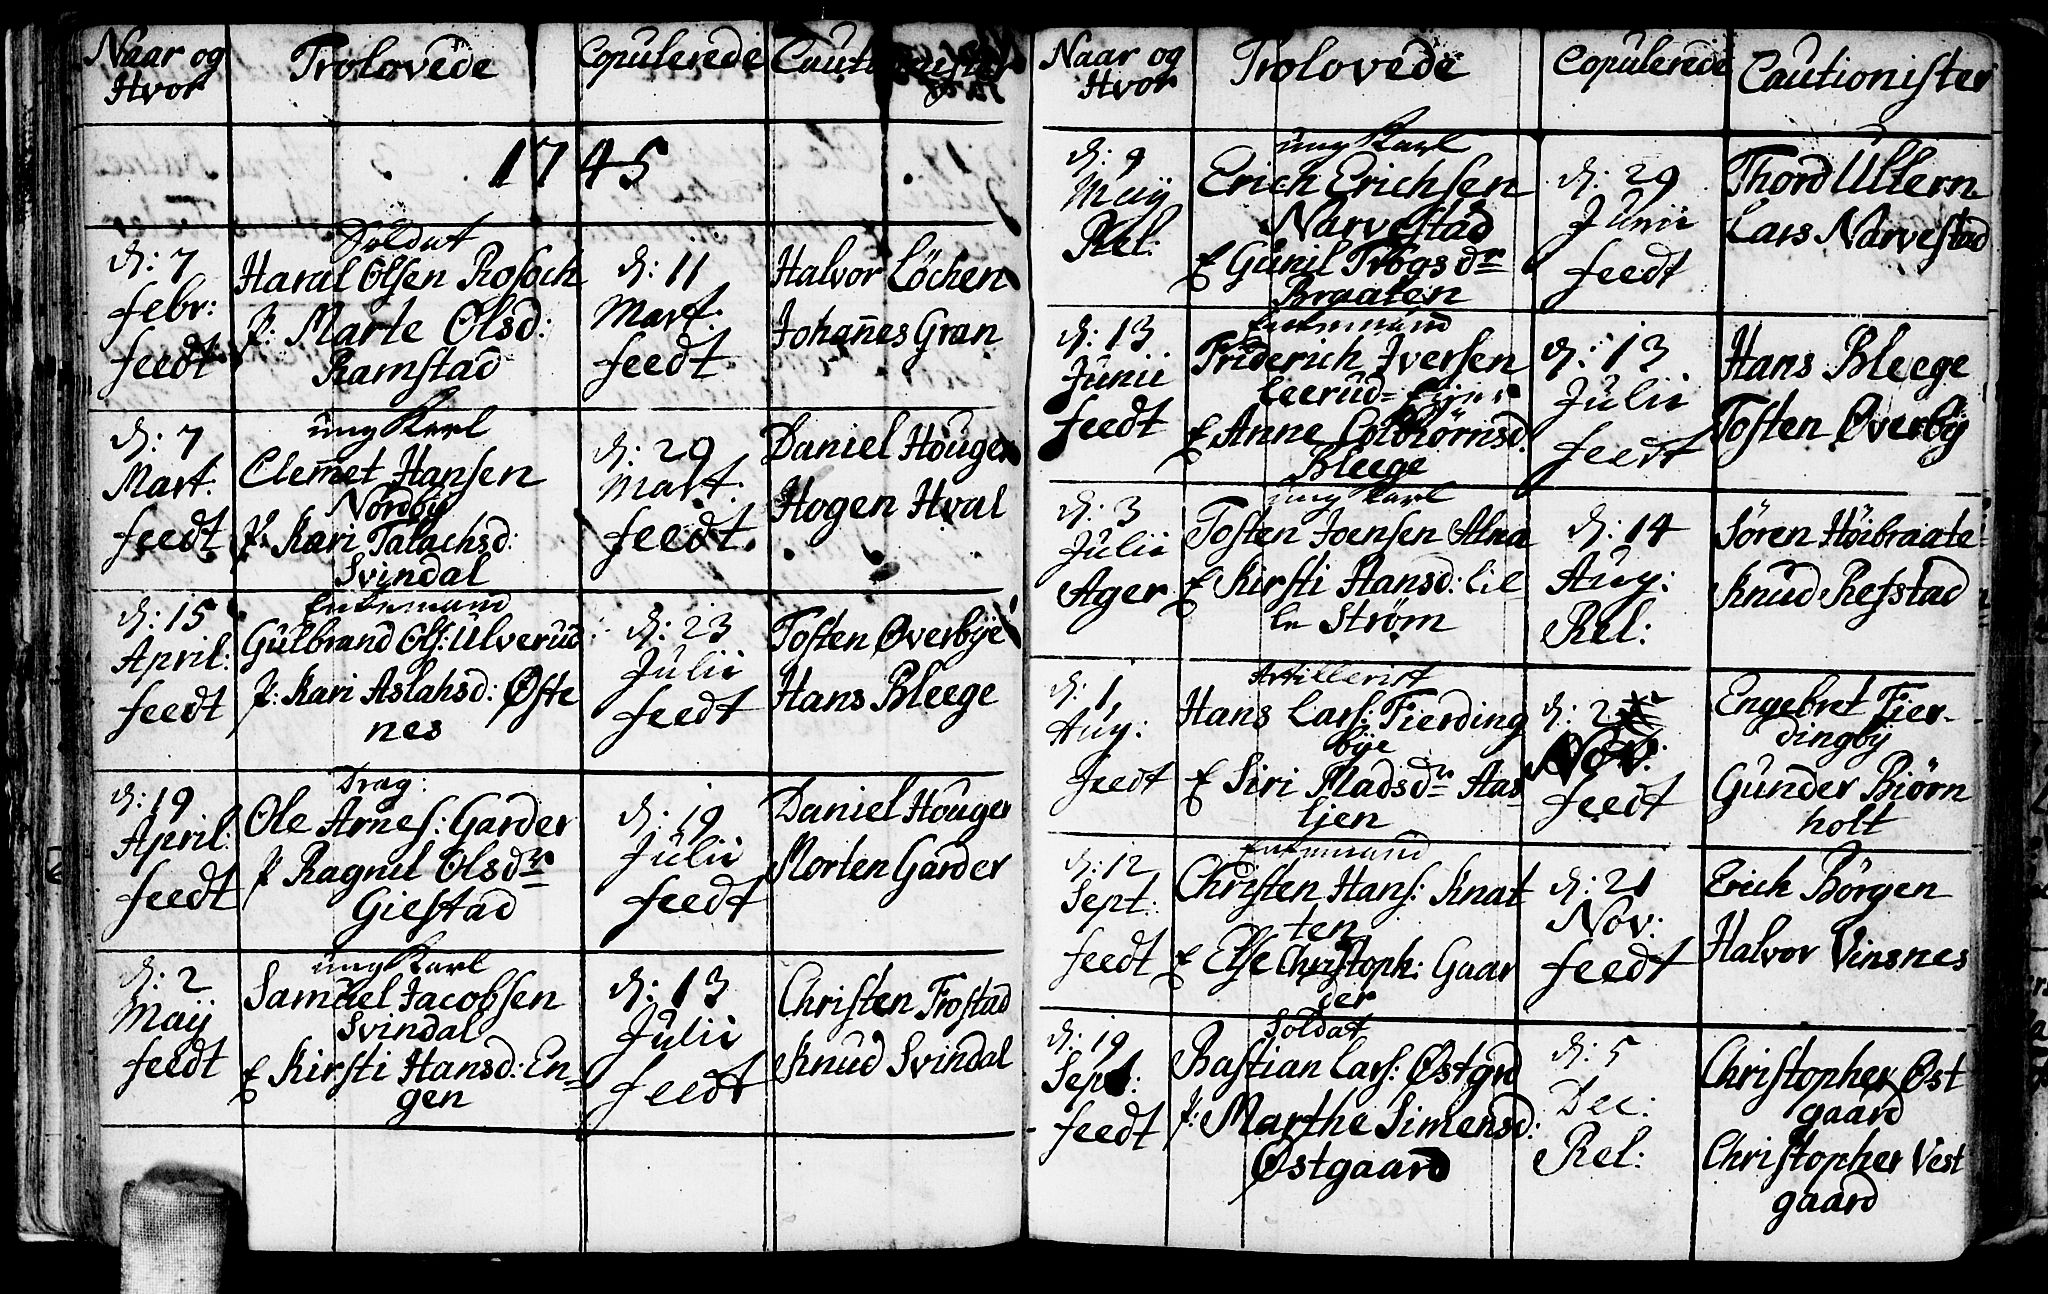 Naar og
Hvor
Trolovede
Copulerede
1745
d: 7
febr:
feedt
Soldat
Haral Olsen Rosoch
P: Marte Olsd:
Ramstad
d: 11
Mart:
feedt
Halvor Löchen
Johan̄es Gran
d: 7
Mart:
feedt
ung Karl
Clem̄et Hansen
Nordby
P: Kari Talachsd:
Svindal
d: 29
Mart:
feedt
Daniel Houger
Hogen Hval
d: 15
April:
feedt
Enkemand
Gulbrand Ols: Ulverud
P: Kari Aslahsd: Øste
nes
d: 23
Julii
feedt
Tosten Øverbye
Hans Bleege
d: 19
April:
feedt
Drag:
Ole Arnes: Garder
P Ragnil Olsdr
Giestad
d: 19
Julii
feedt
Daniel Houger
Morten Garder
d: 2
Maij
feedt
ung Karl
Samuel Jacobsen
Svindal
E Kirsti Hansd: En-
gen
d: 13
Julii
feedt
Christen Frostad
Knud Svindal
Naar og
Hvor
Trolovede
Copulerede
Cautionister
d: 9
Maij
Rel:
ung Karl
Erich Erichsen
Narvestad
E Gunil Trogsdr
Braaten
d: 29
Junii
feedt
Thord Ullern
Lars Narvestad
d: 13
Junii
feedt
Enkemand
Friderich Iversen
Leerud=
E Anne Colbiørnsd:
Bleege
d: 13
Julii
feedt
Hans Bleege
Tosten Øverby
d: 3
Julii
Ager
ung Karl
Tosten Joensen Alna
E Kirsti Hansd: Lil
le Strøm
d: 14
Aug:
Rel:
Sören Höibraate
Knud Refstad
d: 1,
Aug:
feedt
Artillerist
Hans Lars: Fierding
bye
E Siri Madsdr Aas
ljen
d: 2
Nov:
feedt
Engebret Fier-
dingby
Gunder Biörn
holt
d: 12
Sept:
feedt
Enkemand
Christen Hans: Knat
ten
E Else Christoph: Gaar
der
d: 21
Nov:
feedt
Erich Börgen
Halvor Vinsnes
d: 19
Sept:
feedt
Soldat
Bastian Lars: Østgrd
P: Marthe Simensd:
Østgaard
d: 5
Dec:
Rel:
Christopher Øst
gaard
Christopher Vest
gaard